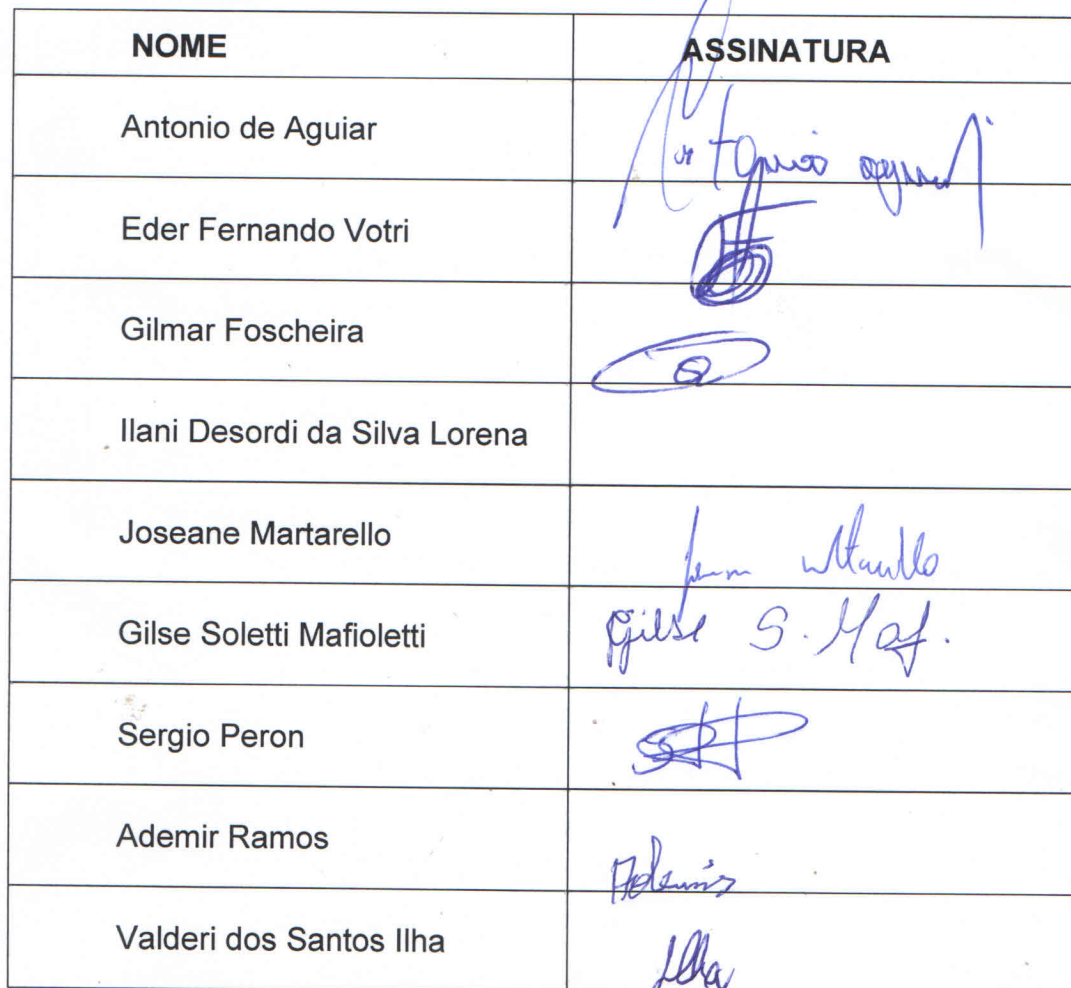 NOME ASSINATURA
Antonio de Aguiar
Eder Fernando Votri
Gilmar Foscheira
Ilani Desordi da Silva Lorena
Joseane Martarello
Gilse Soletti Mafioletti Gilse S. Maf.
Sergio Peron
Ademir Ramos Ademir
Valderi dos Santos Ilha Ilha